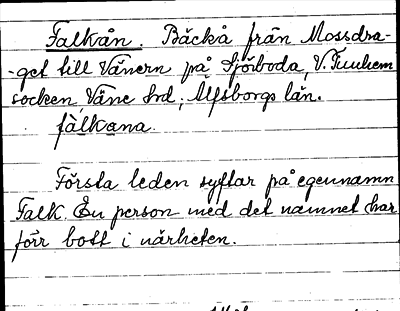 Falkån. Bäckå från Mossdra-
-get till Vänern på Sjörboda, V. Tunhem
socken, Väne hd, Älfsborgs län.
fàlkana.
Första leden syftar på egennamn
Falk. En person med det namnet har
förr bott i närheten.